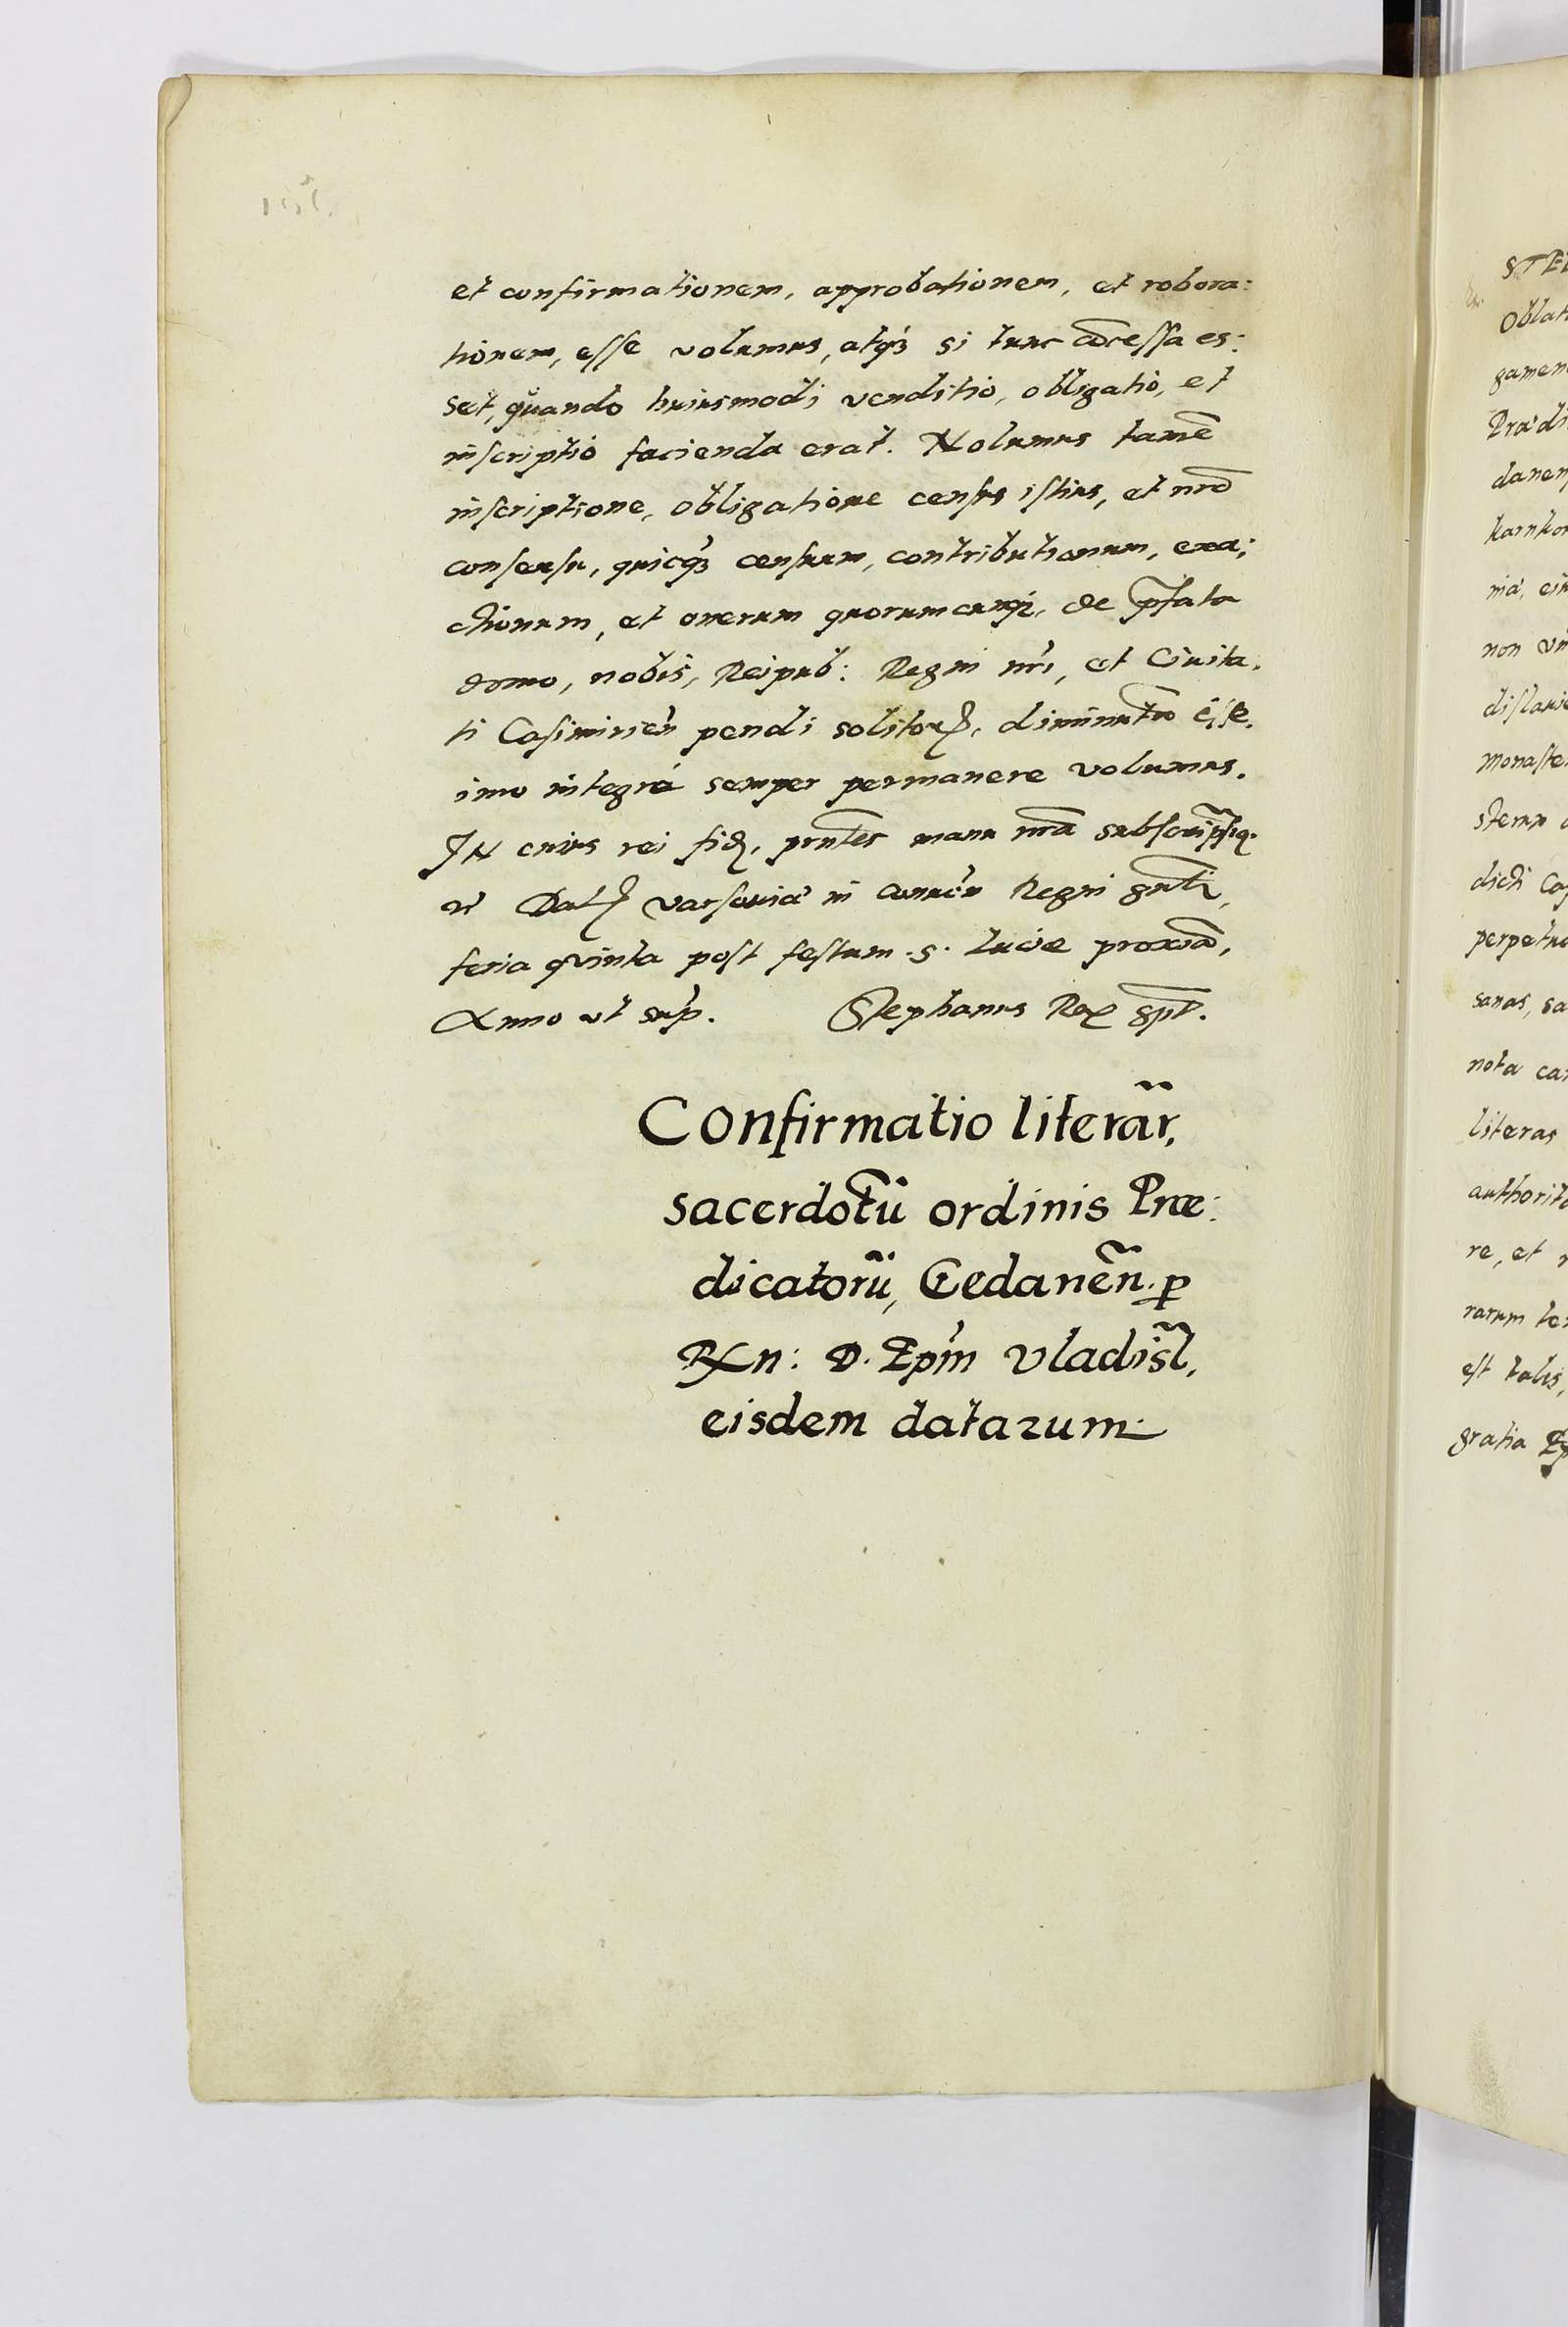 et confirmationem, approbationem, et robora:
tionem, esse volumus, atq́ꝫ si tunc cōcessa es:
set, quando huiusmodi venditio, obligatio, et
inscriptio facienda erat. Nolumus tamē
inscriptione, obligatione census istius, et nrō
consensu, quicq́ꝫ censuum, contributionum, exa:
ctionum, et onerum quorumcunqꝫ, de p̄fata
domo, nobis, Reipub: Regni nr̄i, et Ciuita.
ti Casimirień pendi solitorꝝ, diminutū esse.
imo integrá semper permanere volumus.
IN cuius rei fidꝫ, prn̄tes manu nrā subscripsiꝫ.
Datꝫ Varsouiæ in conuen̄ Regni gnrl̄i,
feria quinta post festum .S. Luciæ proximā,
Anno ut sup̄. Stephanus Rex sp̄t.
Confirmatio literar̄,
sacerdotū ordinis Præ:
dicatorū, Gedanēn. ꝑ
Rxn: D. Epm̄ Vladisl̄,
eisdem datarum.
STE
Oblat
gamen
Prædi
danen
karnko
niæ, ei
non vi
dislauie
Monaste
sterum
dicti Ca
perpetu
sanas, sa
nota ca
literas
authorita
re, et
rarum te
est talis,
gratia Ep